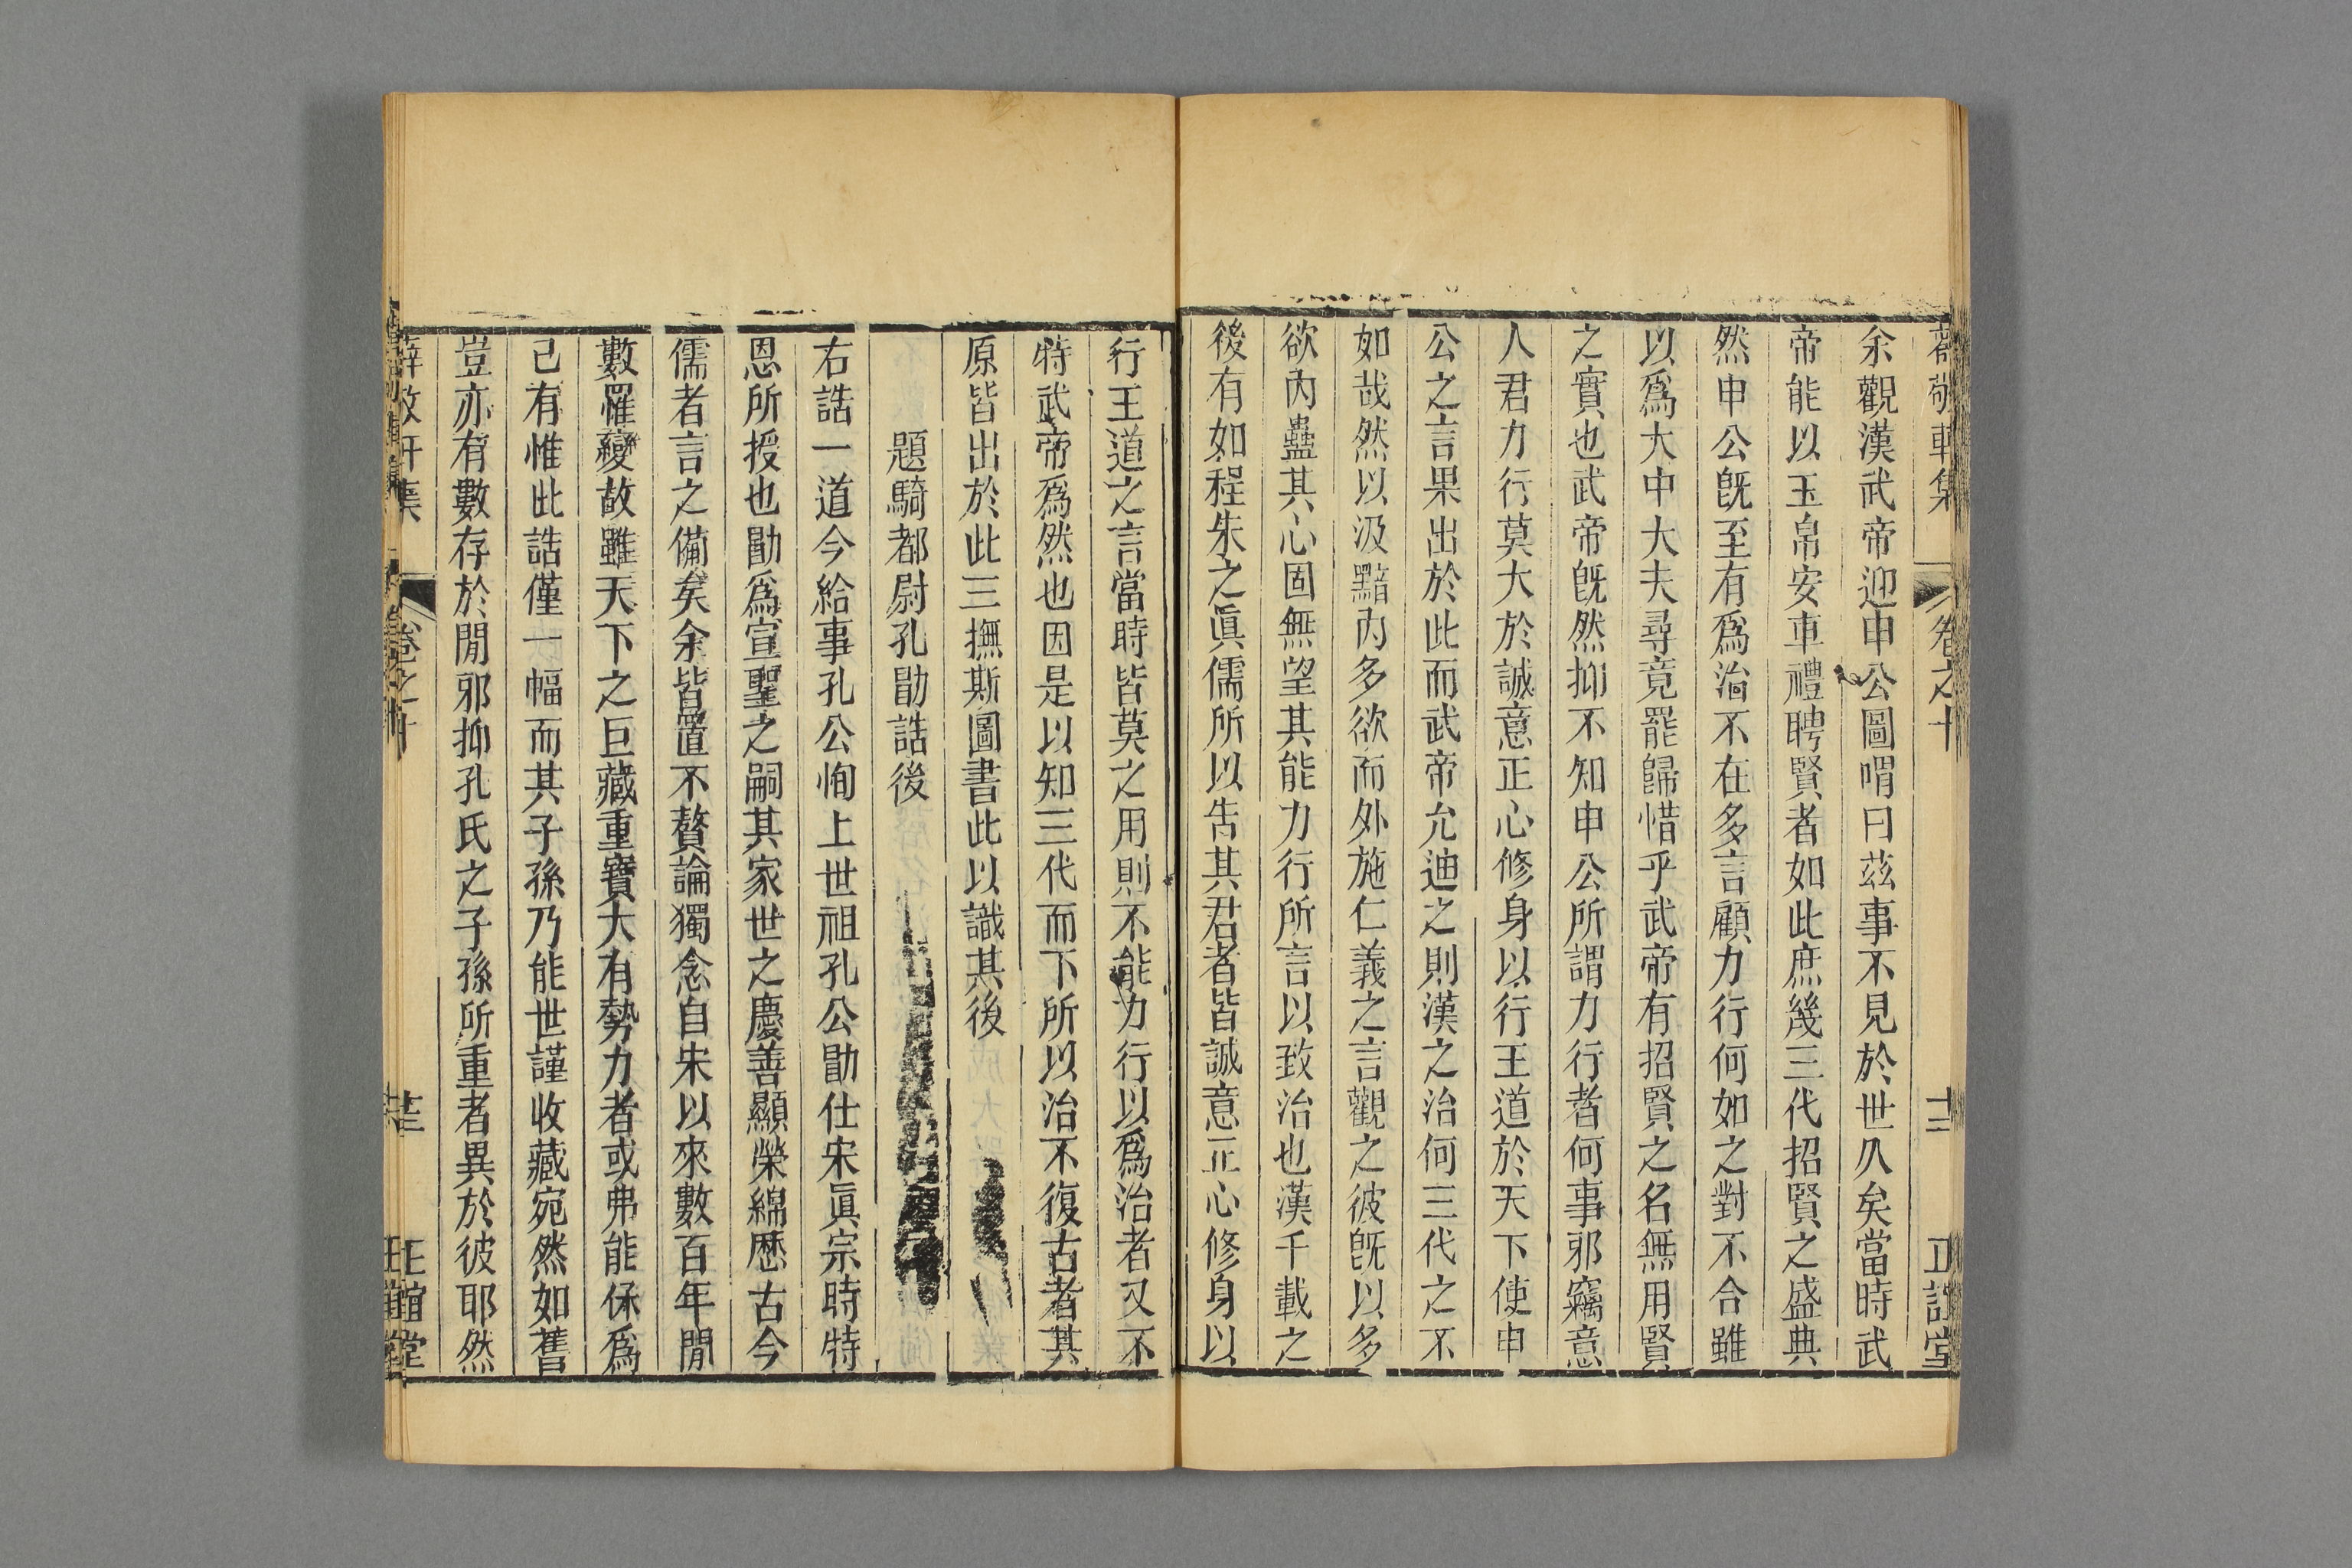 薛敬軒集 卷之十 十二 正誼堂
余觀漢武帝迎申公圖喟曰茲事不見於世久矣當時武
帝能以玉帛安車禮聘賢者如此庶幾三代招賢之盛典
然申公旣至有爲治不在多言顧力行何如之對不合雖
以爲大中大夫尋竟罷歸惜乎武帝有招賢之名無用賢
之實也武帝旣然抑不知申公所謂力行者何事邪竊意
人君力行莫大於誠意正心修身以行王道於天下使申
公之言果出於此而武帝允迪之則漢之治何三代之不
如哉然以汲黯內多欲而外施仁義之言觀之彼旣以多
欲內蠱其心固無望其能力行所言以致治也漢千載之
後有如程朱之眞儒所以告其君者皆誠意正心修身以
行王道之言當時皆莫之用則不能力行以爲治者又不
特武帝爲然也因是以知三代而下所以治不復古者其
原皆出於此三撫斯圖書此以識其後
題騎都尉孔勖誥後
右誥一道今給事孔公恂上世祖孔公勖仕宋眞宗時特
恩所授也勖爲宣聖之嗣其家世之慶善顯榮綿歷古今
儒者言之備矣余皆置不贅論獨念自宋以來數百年閒
數罹變故雖天下之巨藏重寶大有勢力者或弗能保爲
己有惟此誥僅一幅而其子孫乃能世謹收藏宛然如舊
豈亦有數存於閒邪抑孔氏之子孫所重者異於彼耶然
薛敬軒集 卷之十 正誼堂